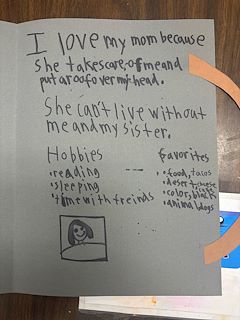 I love my mom because
she takes care, of me and
put a roof over my head.
She can't live without
me and my sister.
Hobbies
favorites
• reading
• sleeping
• time with freinds
• food, tacos
• desert, cheese
• color, black
• animal, dogs